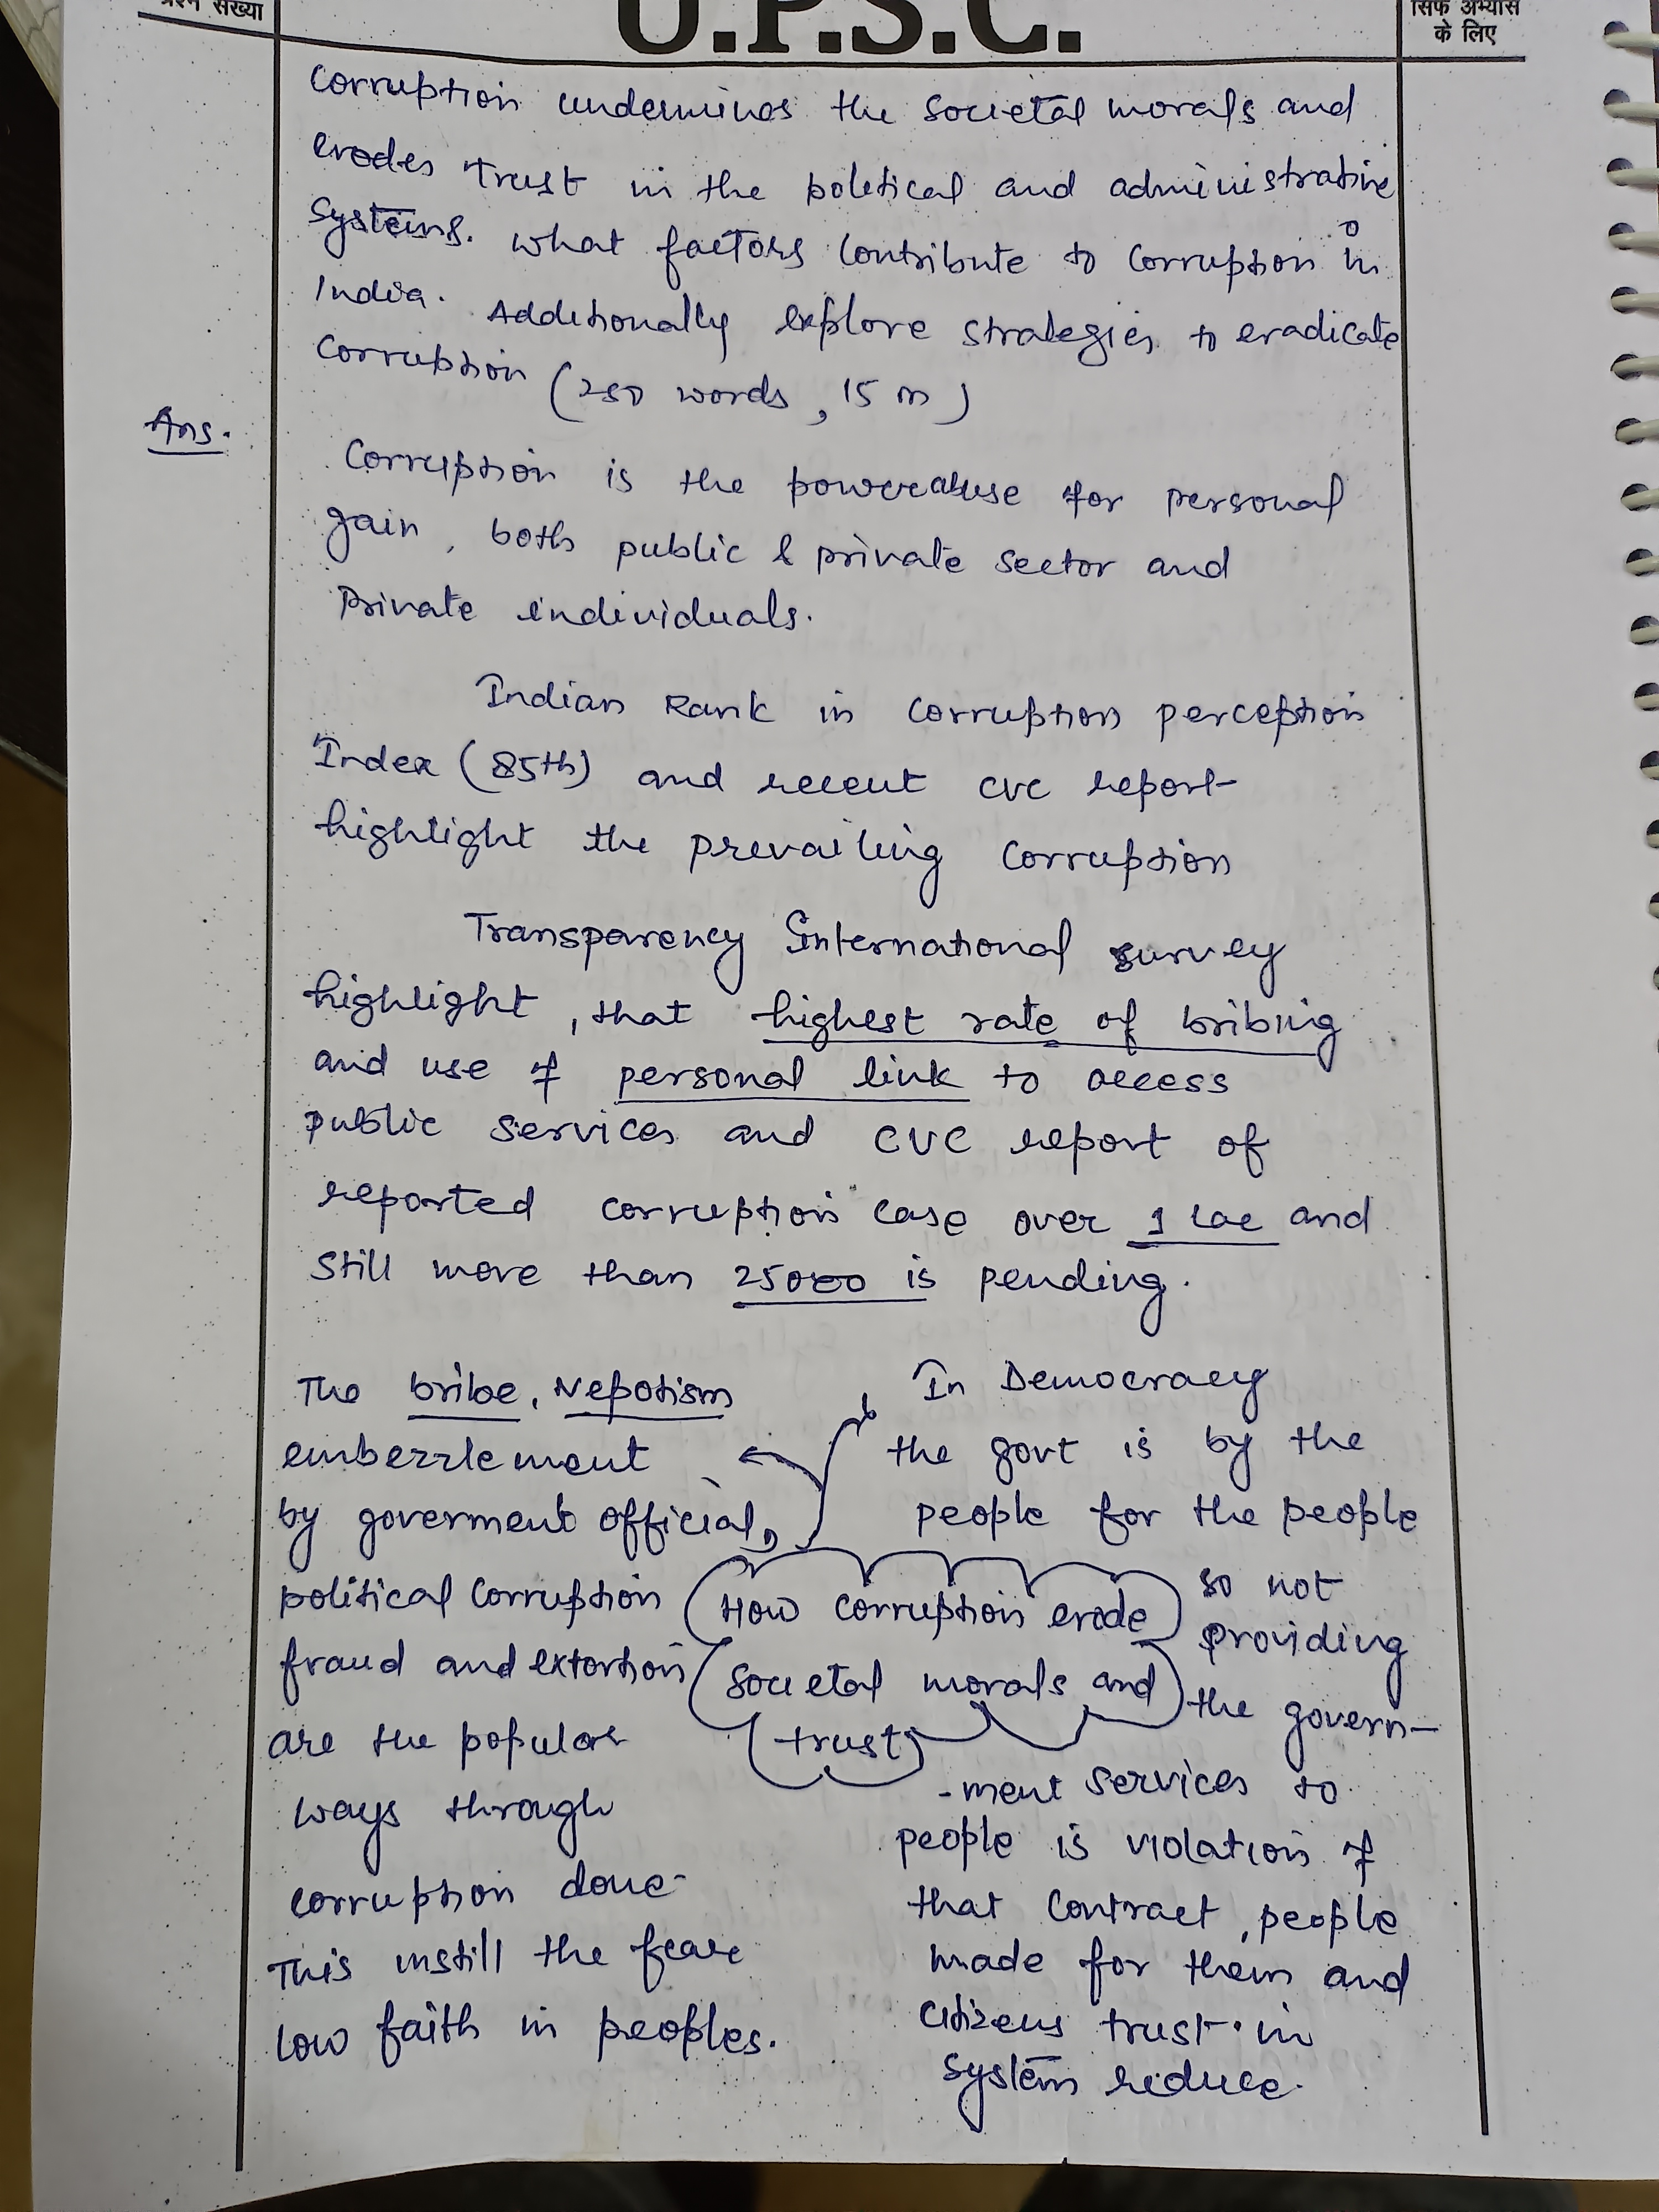 प्रश्न संख्या
U.P.S.C.
सिर्फ अभ्यास
के लिए
Corruption undermines the societal morals and
erodes trust in the political and administrative
systems. What factors contribute to corruption in
India. Additionally explore strategies to eradicate
corruption (250 words, 15 m)
Ans.
Corruption is the powerabuse for personal
gain, both public & private sector and
Private individuals.
Indian Rank in corruption perception
Index (85th) and recent CVC report
highlight the prevailing corruption
Transparency International survey
highlight, that highest rate of bribing
and use of personal link to access
public services and CVC report of
reported corruption case over 1 lac and
still more than 25000 is pending.
The bribe, Nepotism
embezzlement
by goverment official,
political corruption
fraud and extortion
are the popular
ways through
corruption done
This instill the fear
low faith in peoples.
How corruption erode
societal morals and
trust
In Democracy
the govt is by the
people for the people
so not
providing
the govern-
-ment services to
people is violation of
that contract, people
made for them and
citizens trust in
system reduce.